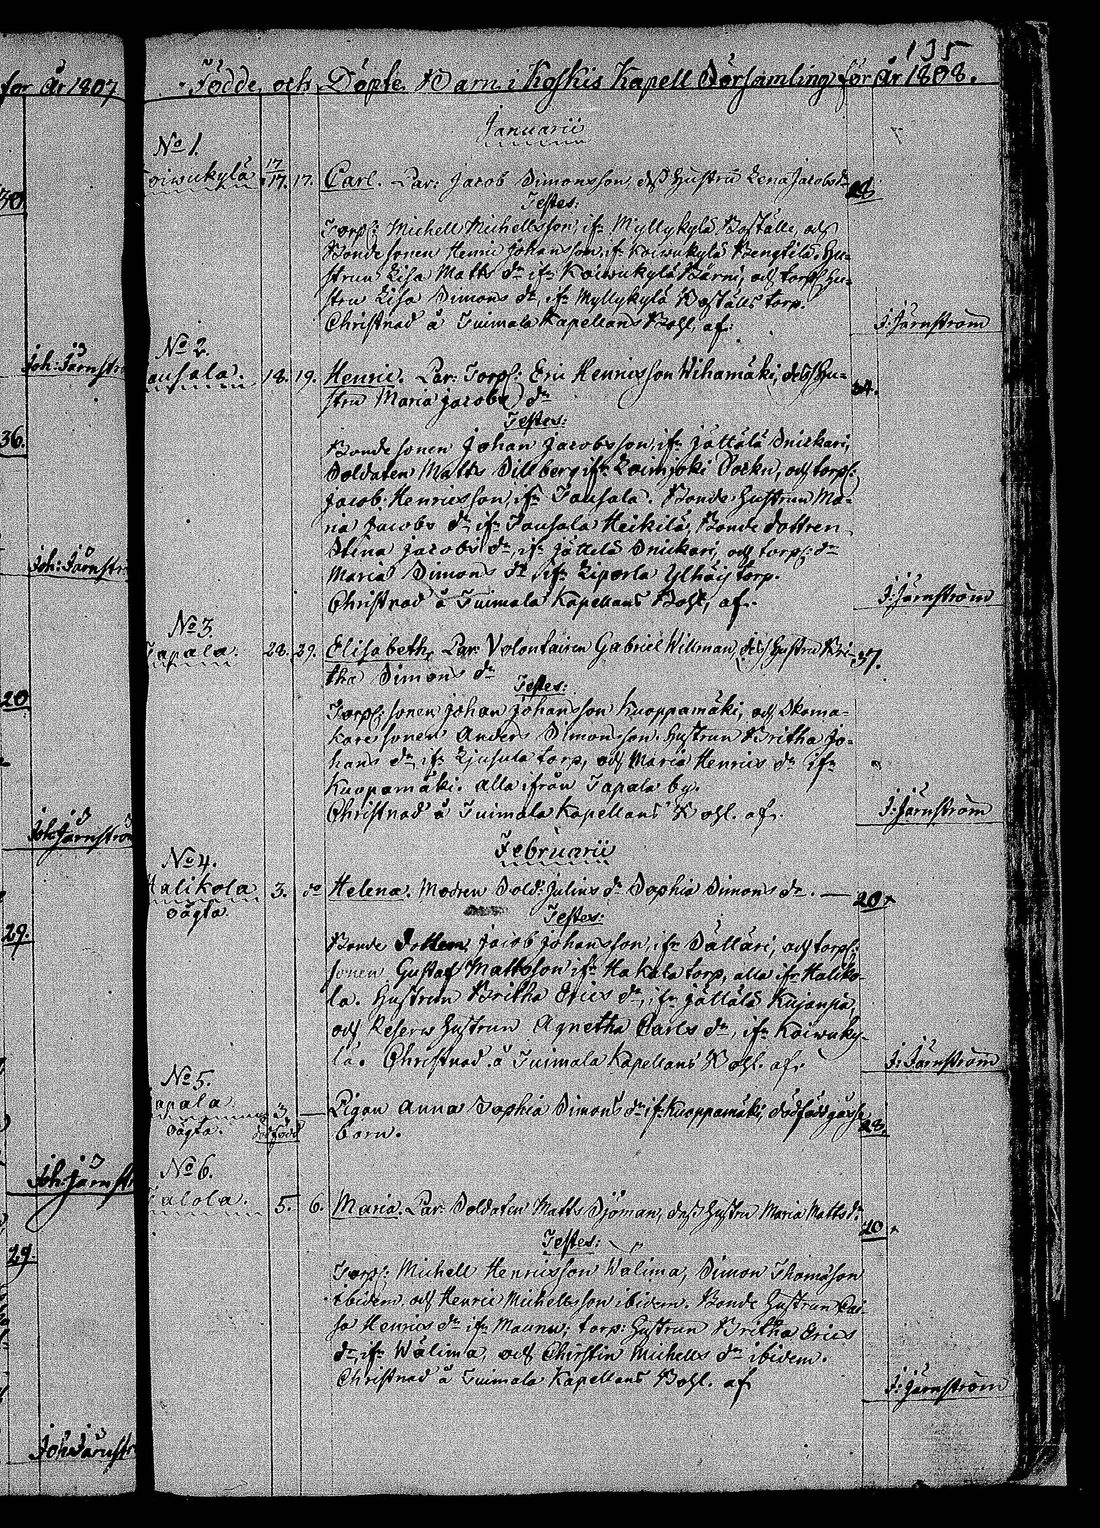 for År 1807
30.
Joh: Järnstr
36.
Joh: Järnstr
20
Joh: Järnström
29.
Joh: Järnstr
29.
Joh: Järnstr
135
Födde och Döpte Barn i Koskis Kapell Församling för År 1808.
Januarii
No 1.
Koiwukylä 17/17. 17. Carl. Par: Jacob Simonsson, dess Hustru Lena Jacobs dr
Testes:
Torp: Michell Michellsson, ifr Myllykylä Boställe, och
Bonde sonen Henric Johansson, ifr Koiwukylä Bengtilä. Hu-
strun Lisa Matts dr ifr Koiwukylä Bärni, och torp: Hu-
stru Lisa Simons dr, ifr Myllykylä Boställs torp.
Christnad å Tuimala Kapellans Bohl, af: J: Järnström
No 2.
ausala. 18. 19. Henric. Par: Torp: Eric Henricsson Wihamäki, dess Hu- 34.
stru Maria Jacobs dr
Testes:
Bonde sonen Johan Jacobsson, ifr Jättälä Snickari,
Soldaten Matts Sillberg ifr Loimjoki Socku, och torp:
Jacob Henricsson, ifr Tausala. Bonde Hustrun Ma-
ria Jacobs dr, ifr Tausala Heikilä, Bonde dottren
Stina Jacobs dr, ifr Jättelä Snickari, och torp: dr
Maria Simons dr, ifr Liperla Ylhäis torp.
Christnad å Tuimala Kapellans Bohl, af: J: Järnström
No 3.
Tapala. 28. 29. Elisabeth, Par: Volontairen Gabriel Willman, dess Hustru Bri- 37.
tha Simons dr
Testes:
Torp: sonen Johan Johansson Kuoppamäki, och Skoma-
kare sonen Anders Simonsson. Hustrun Britha Jo-
hans dr, ifr Liusula torp, och Maria Henrics dr ifr
Kuopamäki. alla ifrån Tapala by.
Christnad å Tuimala Kapellans Bohl. af: J: Järnström
Februarii
No 4.
Halikola 3. do Helena. Modren Sold: Julins dr Sophia Simons dr. — 20.
oägta.
Testes:
Bonde Jacob Johansson, ifr Sälläri, och torp:
sonen Gustaf Mattsson ifr Hakala torp, alla ifr Haliko-
la. Hustrun Britha Erics dr, ifr Jättälä Kujanpä,
och Reserv Hustrun Agnetha Carls dr, ifr Koiwuky-
lä. Christnad å Tuimala Kapellans Bohl. af: J: Järnström
No 5.
apala 3. — Pigan Anna Sophia Simons dr ifr Kuoppamäki, dödfödt gosse 28.
oägta. dödfödd barn.
No 6.
Talola. 5. 6. Maria. Par: Soldaten Matts Sjöman, dess Hustru Maria Matts dr. 40.
Testes:
Torp: Michell Henricsson Wälima, Simon Thomasson
ibidem, och Henric Michellsson ibidem. Bonde Hustrun Cai-
sa Henrics dr ifr Maunu; torp: Hustrun Britha Erics
dr, ifr Wälima, och Chirstin Michells dr ibidem.
Christnad å Tuimala Kapellans Bohl. af J: Järnström